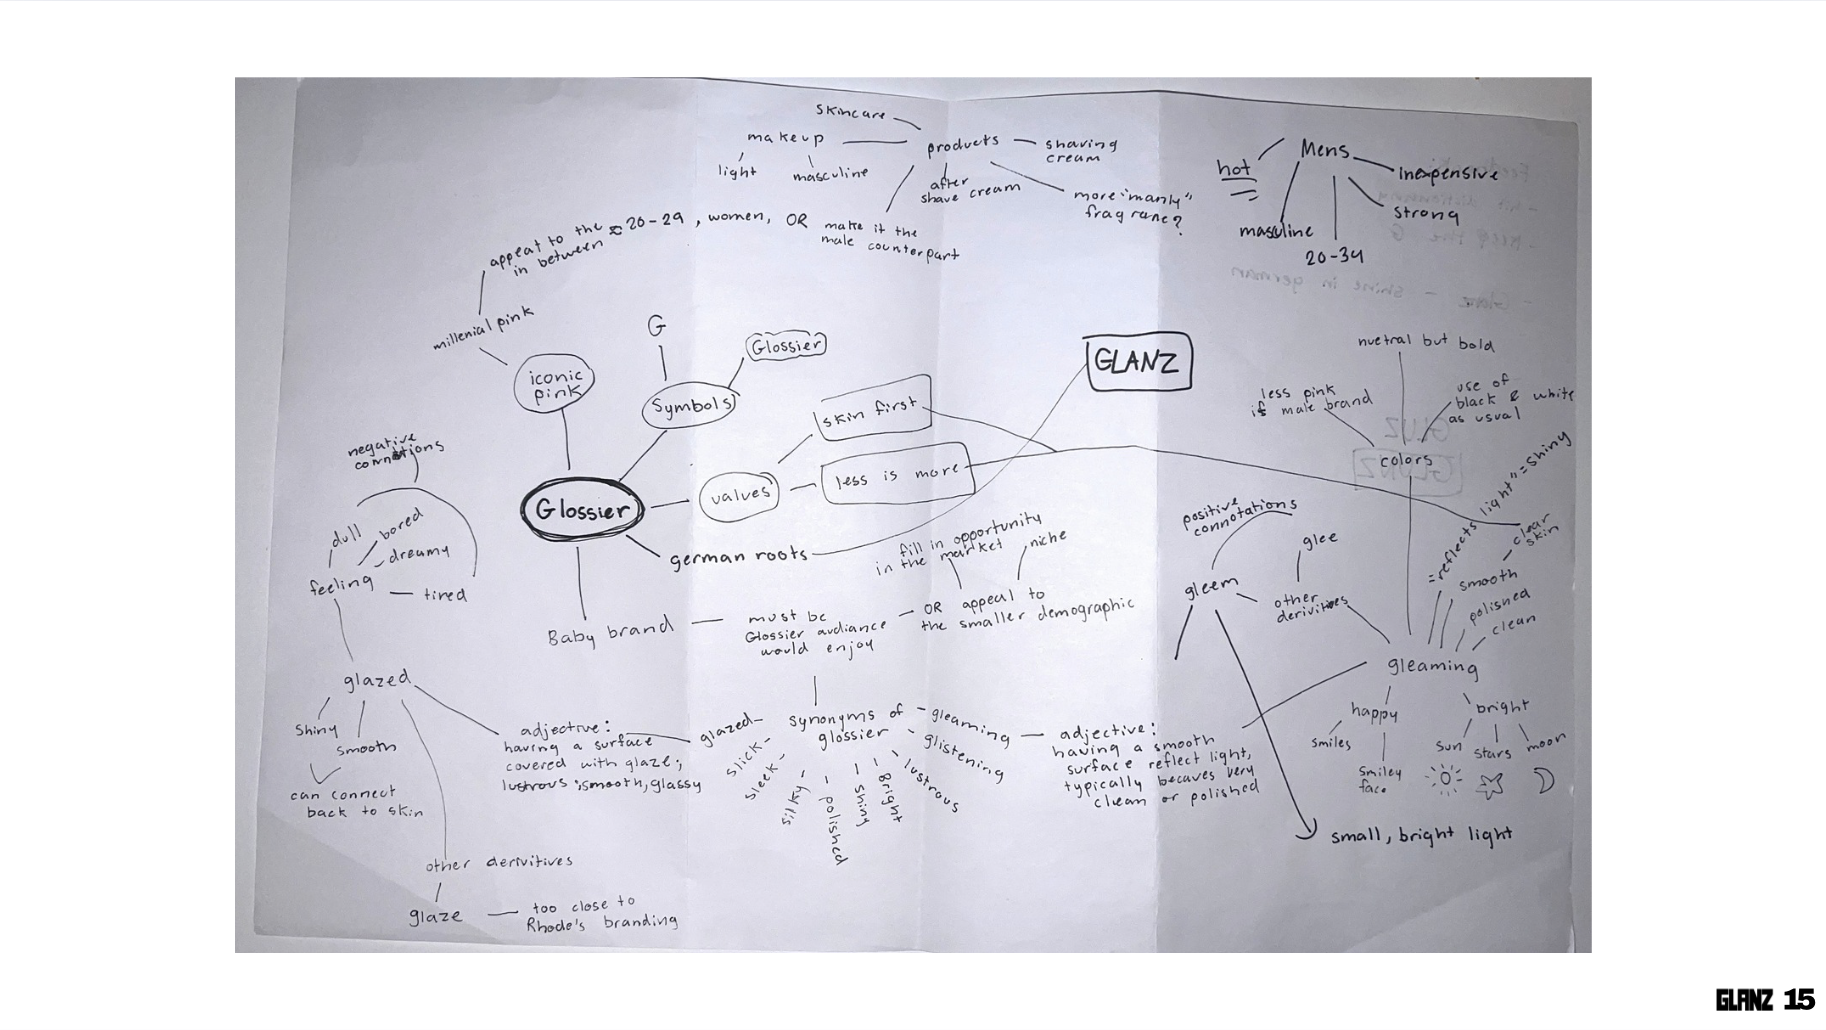 skincare
makeup
light
masculine
products
shaving
cream
after
shave cream
more "manly"
fragrance?
make it the
male counterpart
appeal to the ≈ 20-29, women, OR
in between
millenial pink
iconic
pink
G
Symbols
Glossier
Glossier
values
skin first
less is more
german roots
GLANZ
Baby brand
must be
Glossier audiance
would enjoy
OR appeal to
the smaller demographic
fill in opportunity
in the market
niche
Mens
hot
masuline
20-34
strong
inexpensive
nuetral but bold
less pink
if male brand
use of
black & white
as usual
colors
positive
connotations
gleem
glee
other
derivitives
gleaming
= "reflects light" = shiny
clear
skin
smooth
polished
clean
happy
smiles
smiley
face
bright
sun
stars
moon
small, bright light
negative
connotions
dull
bored
dreamy
tired
feeling
glazed
shiny
smooth
can connect
back to skin
other derivitives
glaze
too close to
Rhode's branding
adjective:
having a surface
covered with glaze;
lustrous; smooth, glassy
synonyms of
glossier
glazed
slick
sleek
silky
polished
shiny
Bright
lustrous
glistening
gleaming
adjective:
having a smooth
surface reflect light,
typically becaves very
clean or polished
Glanz - shine in german
GLUZ
GLANZ
GLANZ 15